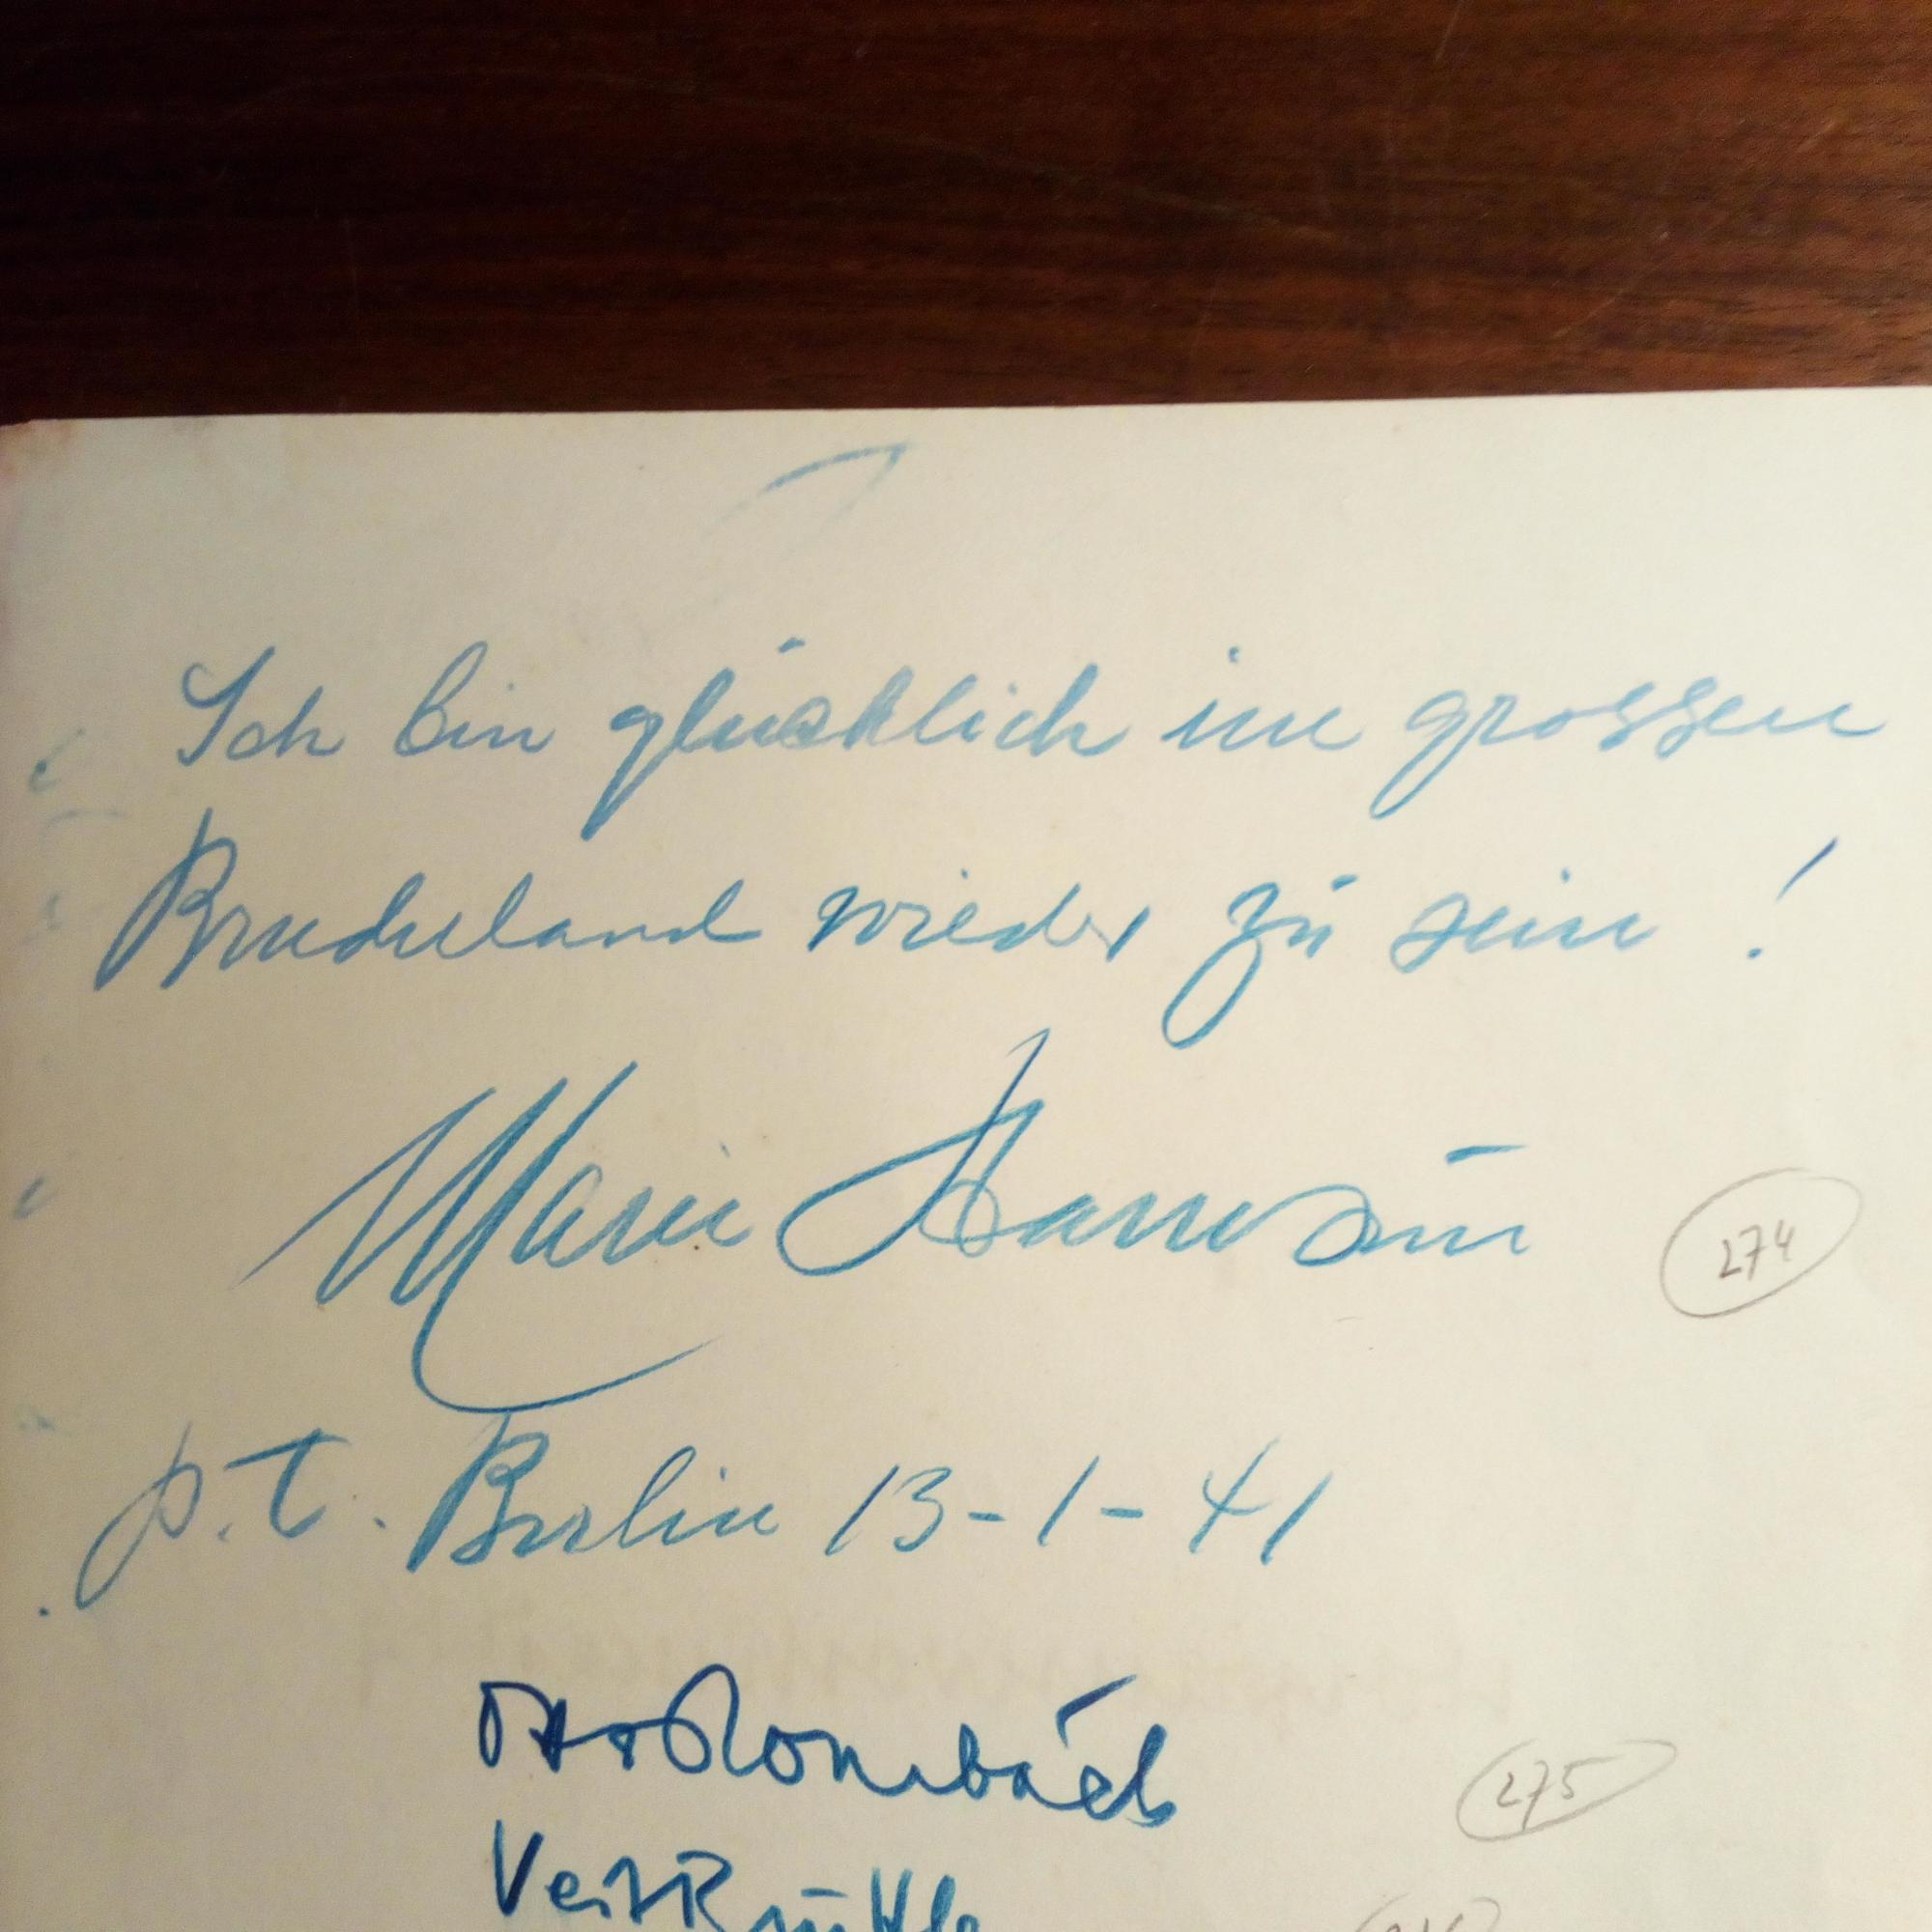 Ich bin glücklich im grossen
Bruderland wieder zu sein !
Marie Hamsun
274
p.t. Berlin 13-1-41
Otto Rombach
275
Veit Bürkle